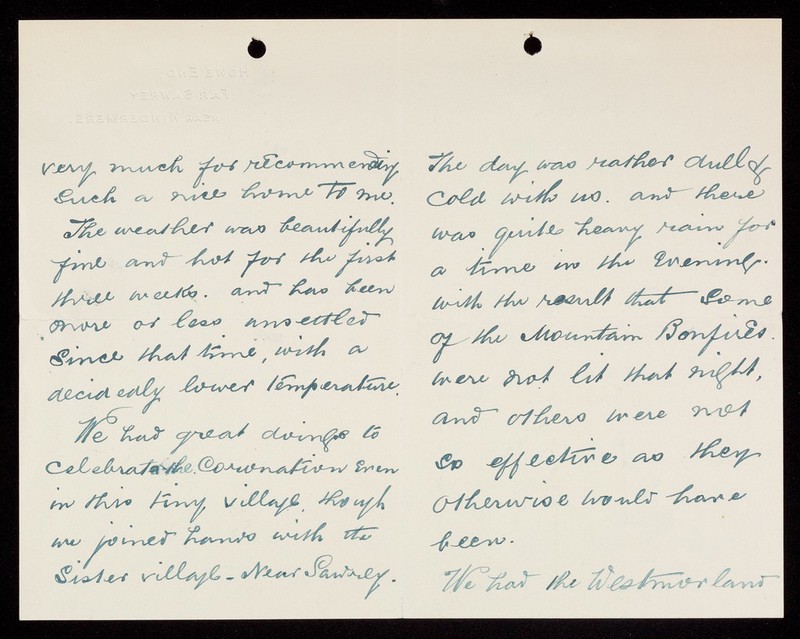 HOWE END
FAR SAWREY
NEAR WINDERMERE.
very much for recommending
such a nice home to me.
The weather was beautifully
fine and hot for the first
three weeks. and has been
more or less unsettled
since that time, with a
decidedly lower temperature.
We had great doings to
celebrate the Coronation even
in this tiny village, though
we joined hands with the
Sister village - Near Sawrey.
The day was rather dull &
cold with us. and there
was quite heavy rain for
a time in the Evening.
with the result that some
of the Mountain Bonfires.
were not lit that night,
and others were not
so effective as they
otherwise would have
been.
We had the Westmorland